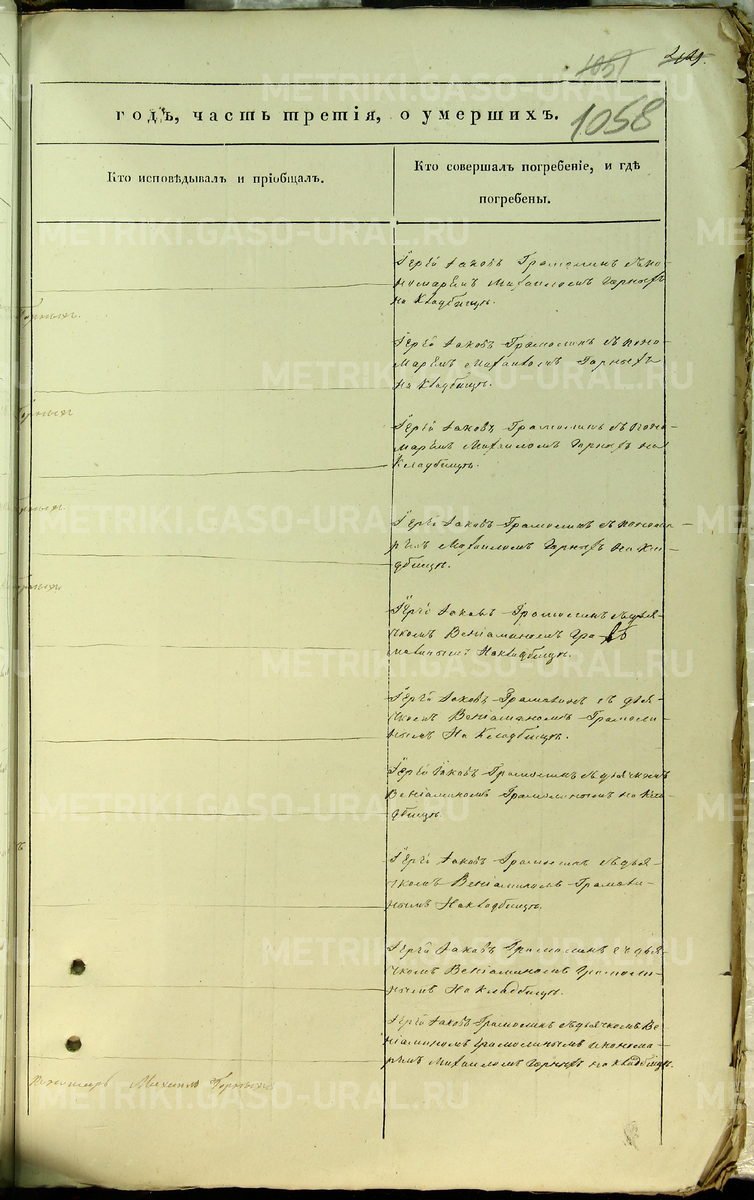 1058
годъ, часть третія, о умершихъ.
Кто исповѣдывалъ и пріобщалъ.
Кто совершалъ погребеніе, и гдѣ
погребены.
Іерей Іаковъ Грамолинъ съ по-
номаремъ Михаиломъ Горныхъ
на кладбищѣ.
Іерей Іаковъ Грамолинъ съ поно-
маремъ Михаиломъ Горныхъ
на кладбищѣ.
Іерей Іаковъ Грамолинъ съ поно-
маремъ Михаиломъ Горныхъ на
кладбищѣ.
Іерей Іаковъ Грамолинъ съ понома-
ремъ Михаиломъ Горныхъ на кла-
дбищѣ.
Іерей Іаковъ Грамолинъ съ дья-
чкомъ Веніаминомъ Гра-
молинымъ на кладбищѣ.
Іерей Іаковъ Грамолинъ съ дья-
чкомъ Веніаминомъ Грамоли-
нымъ на кладбищѣ.
Іерей Іаковъ Грамолинъ съ дьячкомъ
Веніаминомъ Грамолинымъ на кла-
дбищѣ.
Іерей Іаковъ Грамолинъ съ дья-
чкомъ Веніаминомъ Грамоли-
нымъ на кладбищѣ.
Іерей Іаковъ Грамолинъ съ дья-
чкомъ Веніаминомъ Грамоли-
нымъ на кладбищѣ.
Іерей Іаковъ Грамолинъ съ дьячкомъ Ве-
ніаминомъ Грамолинымъ и понома-
ремъ Михаиломъ Горныхъ на кладбищѣ.
Горныхъ.
Горныхъ
пономарь Михаилъ Горныхъ
METRIKI.GASO-URAL.RU